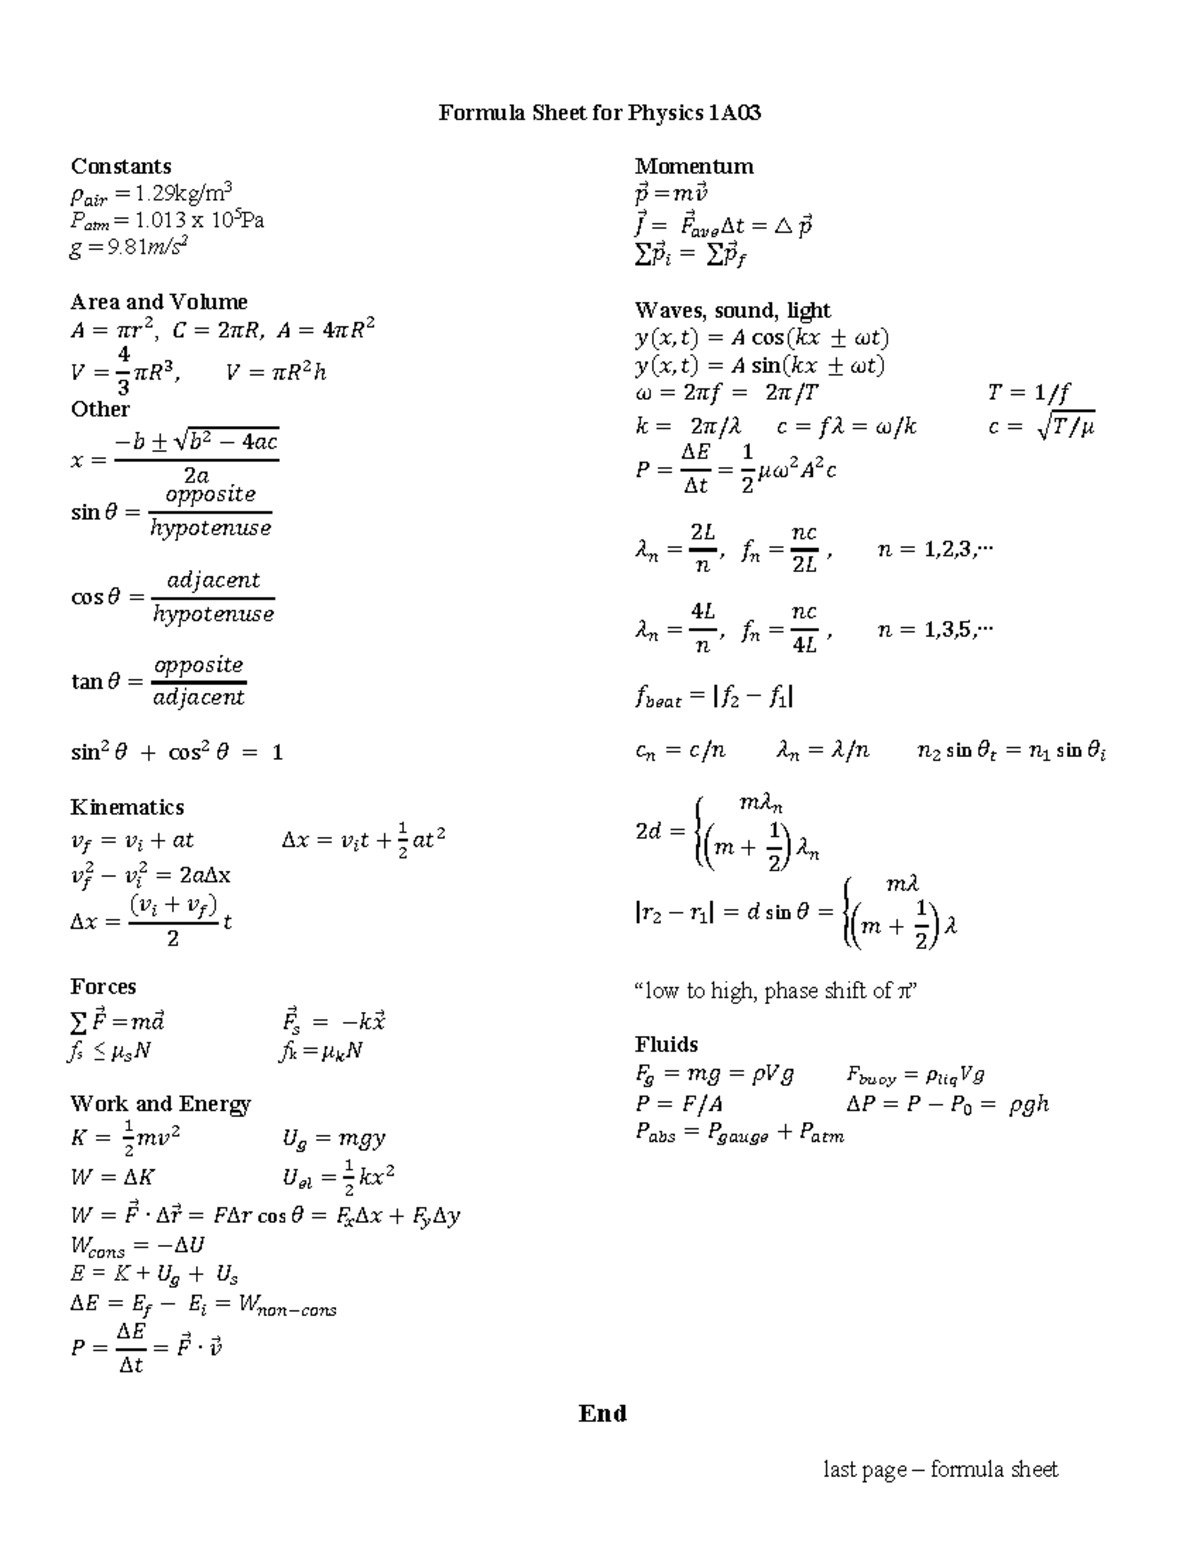 Formula Sheet for Physics 1A03
Constants
ρair = 1.29kg/m³
Patm = 1.013 x 10⁵Pa
g = 9.81m/s²
Area and Volume
A = πr², C = 2πR, A = 4πR²
V = 4/3 πR³, V = πR²h
Other
x = (−b ± √(b² − 4ac)) / 2a
sin θ = opposite / hypotenuse
cos θ = adjacent / hypotenuse
tan θ = opposite / adjacent
sin² θ + cos² θ = 1
Kinematics
v_f = v_i + at Δx = v_i t + 1/2 at²
v_f² − v_i² = 2aΔx
Δx = (v_i + v_f)/2 t
Forces
∑ F⃗ = ma⃗ F⃗_s = −kx⃗
f_s ≤ μ_s N f_k = μ_k N
Work and Energy
K = 1/2 mv² U_g = mgy
W = ΔK U_el = 1/2 kx²
W = F⃗ · Δr⃗ = FΔr cos θ = F_xΔx + F_yΔy
W_cons = −ΔU
E = K + U_g + U_s
ΔE = E_f − E_i = W_non−cons
P = ΔE/Δt = F⃗ · v⃗
Momentum
p⃗ = mv⃗
J⃗ = F⃗_ave Δt = △ p⃗
∑p⃗_i = ∑p⃗_f
Waves, sound, light
y(x, t) = A cos(kx ± ωt)
y(x, t) = A sin(kx ± ωt)
ω = 2πf = 2π/T T = 1/f
k = 2π/λ c = fλ = ω/k c = √(T/μ)
P = ΔE/Δt = 1/2 μω²A²c
λ_n = 2L/n, f_n = nc/2L , n = 1,2,3,⋯
λ_n = 4L/n, f_n = nc/4L , n = 1,3,5,⋯
f_beat = |f₂ − f₁|
c_n = c/n λ_n = λ/n n₂ sin θ_t = n₁ sin θ_i
2d = { mλ_n
(m + 1/2) λ_n
|r₂ − r₁| = d sin θ = { mλ
(m + 1/2) λ
“low to high, phase shift of π”
Fluids
F_g = mg = ρVg F_buoy = ρ_liq Vg
P = F/A ΔP = P − P₀ = ρgh
P_abs = P_gauge + P_atm
End
last page – formula sheet